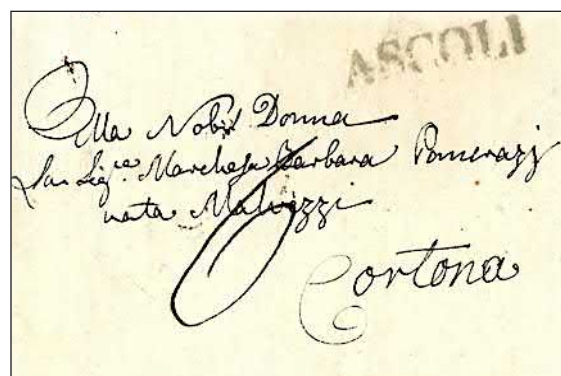 ASCOLI
Alla Nobil Donna
La Sig.ra Marchesa Barbara
nata Malvezzi
Cortona